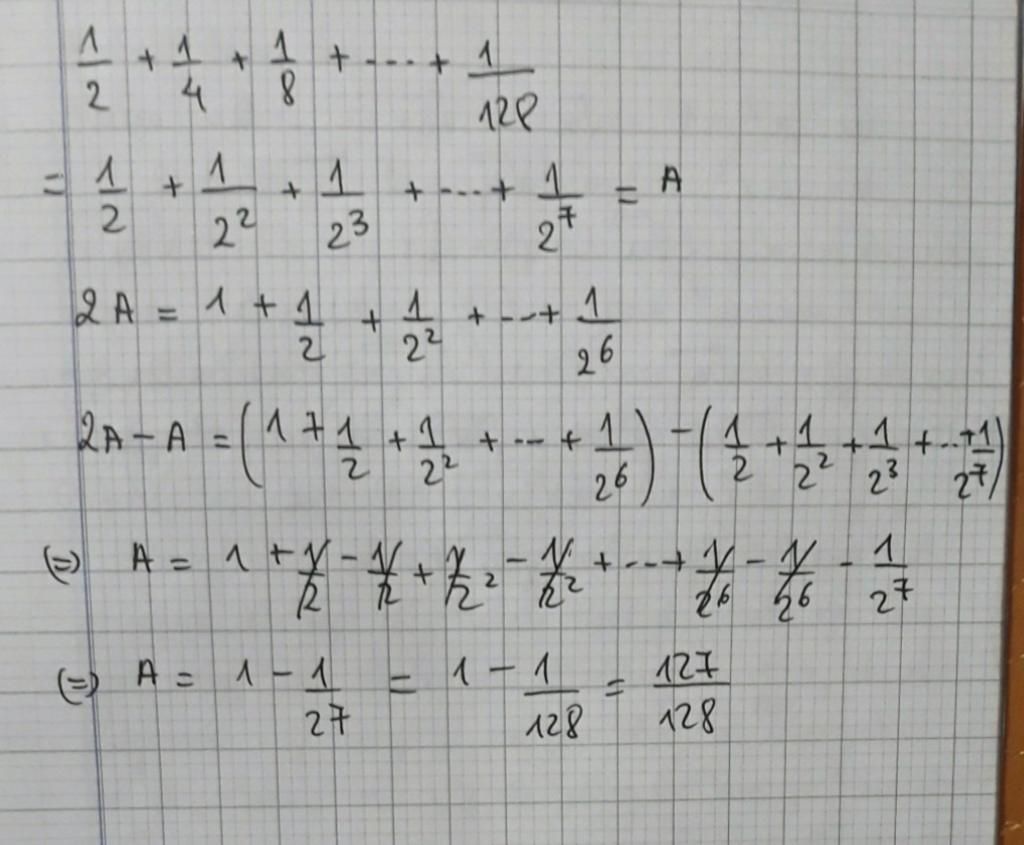 1/2 + 1/4 + 1/8 + ---- + 1/128
= 1/2 + 1/2² + 1/2³ + ---- + 1/2⁷ = A
2A = 1 + 1/2 + 1/2² + --- + 1/2⁶
2A - A = (1 + 1/2 + 1/2² + --- + 1/2⁶) - (1/2 + 1/2² + 1/2³ + --- + 1/2⁷)
(=) A = 1 + 1/2 - 1/2 + 1/2² - 1/2² + --- + 1/2⁶ - 1/2⁶ - 1/2⁷
(=) A = 1 - 1/2⁷ = 1 - 1/128 = 127/128